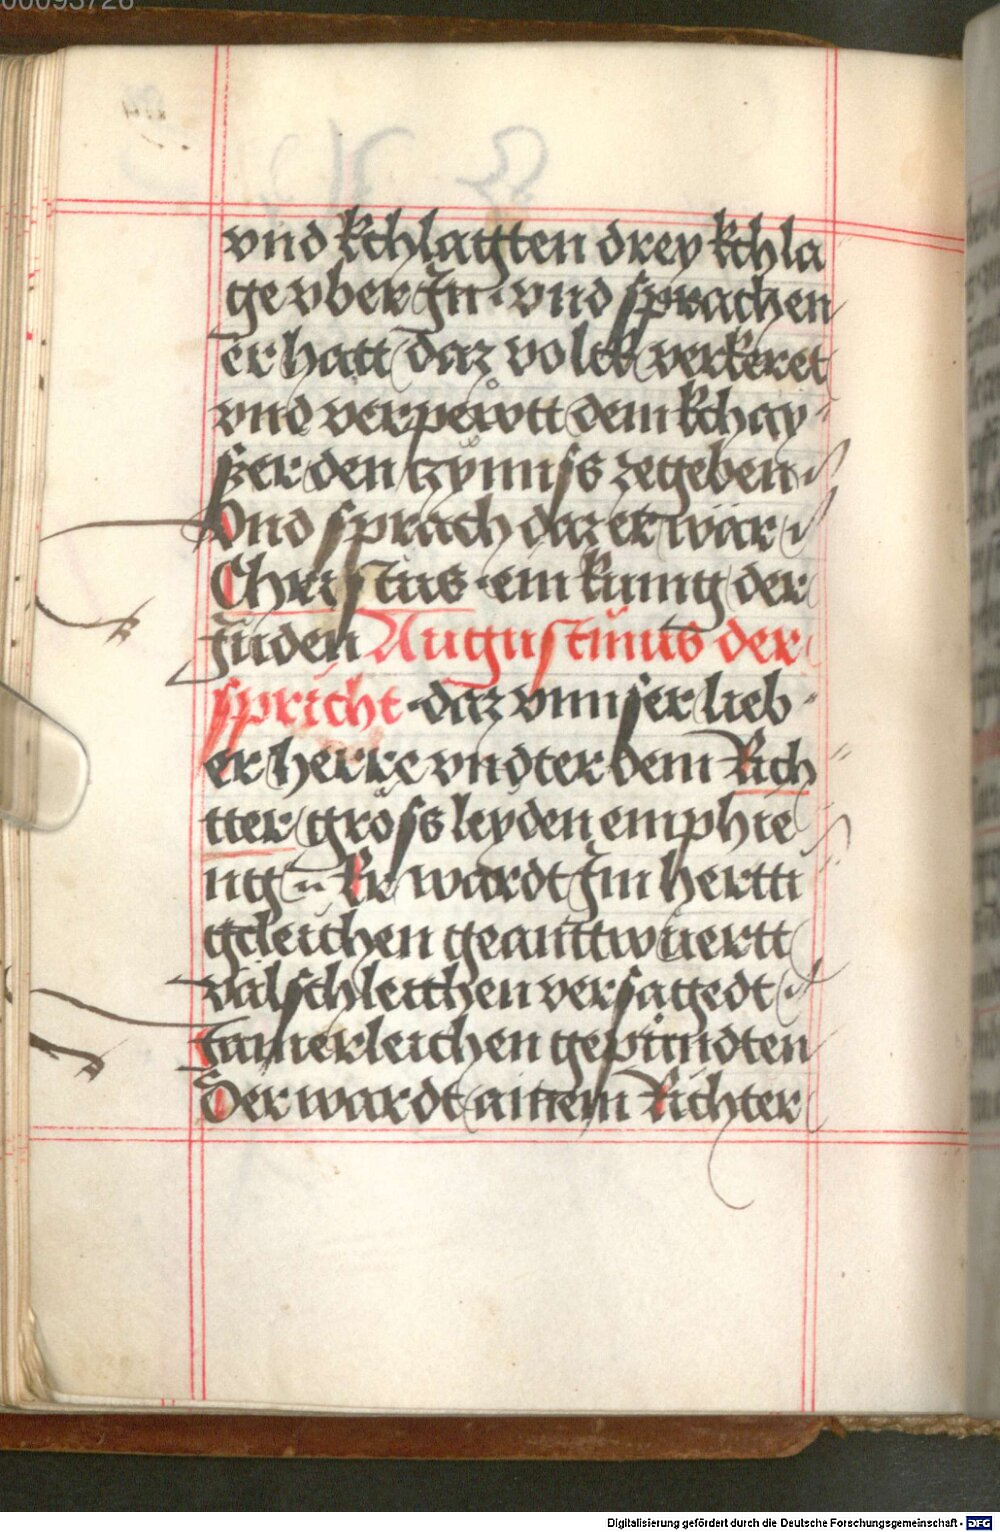 00093726
vnd kchlagten drey kchla
ge vber Jn · vnd sprachen
er hatt daz volck verkeret
vnd verpewtt dem kchay-
ßer den zÿnnss zegeben
Vnd sprach daz er wär
Christus · ein kunig der
Juden Augustinus der
spricht · daz vnnser lieb-
er herre vndter dem Rich
tter gröss leyden emphie
ng Er wardt Jm hertti
gcleichen geanttwuertt
valschleichen versagedt
Jamerleichen gepündten
Der wardt ainem Richter
Digitalisierung gefördert durch die Deutsche Forschungsgemeinschaft - DFG